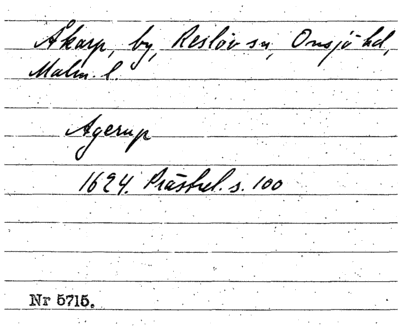 Åkarp, by, Reslöv sn, Onsjö hd,
Malm. l.
Agerup
1624. Prästrel. s. 100
Nr 5715.